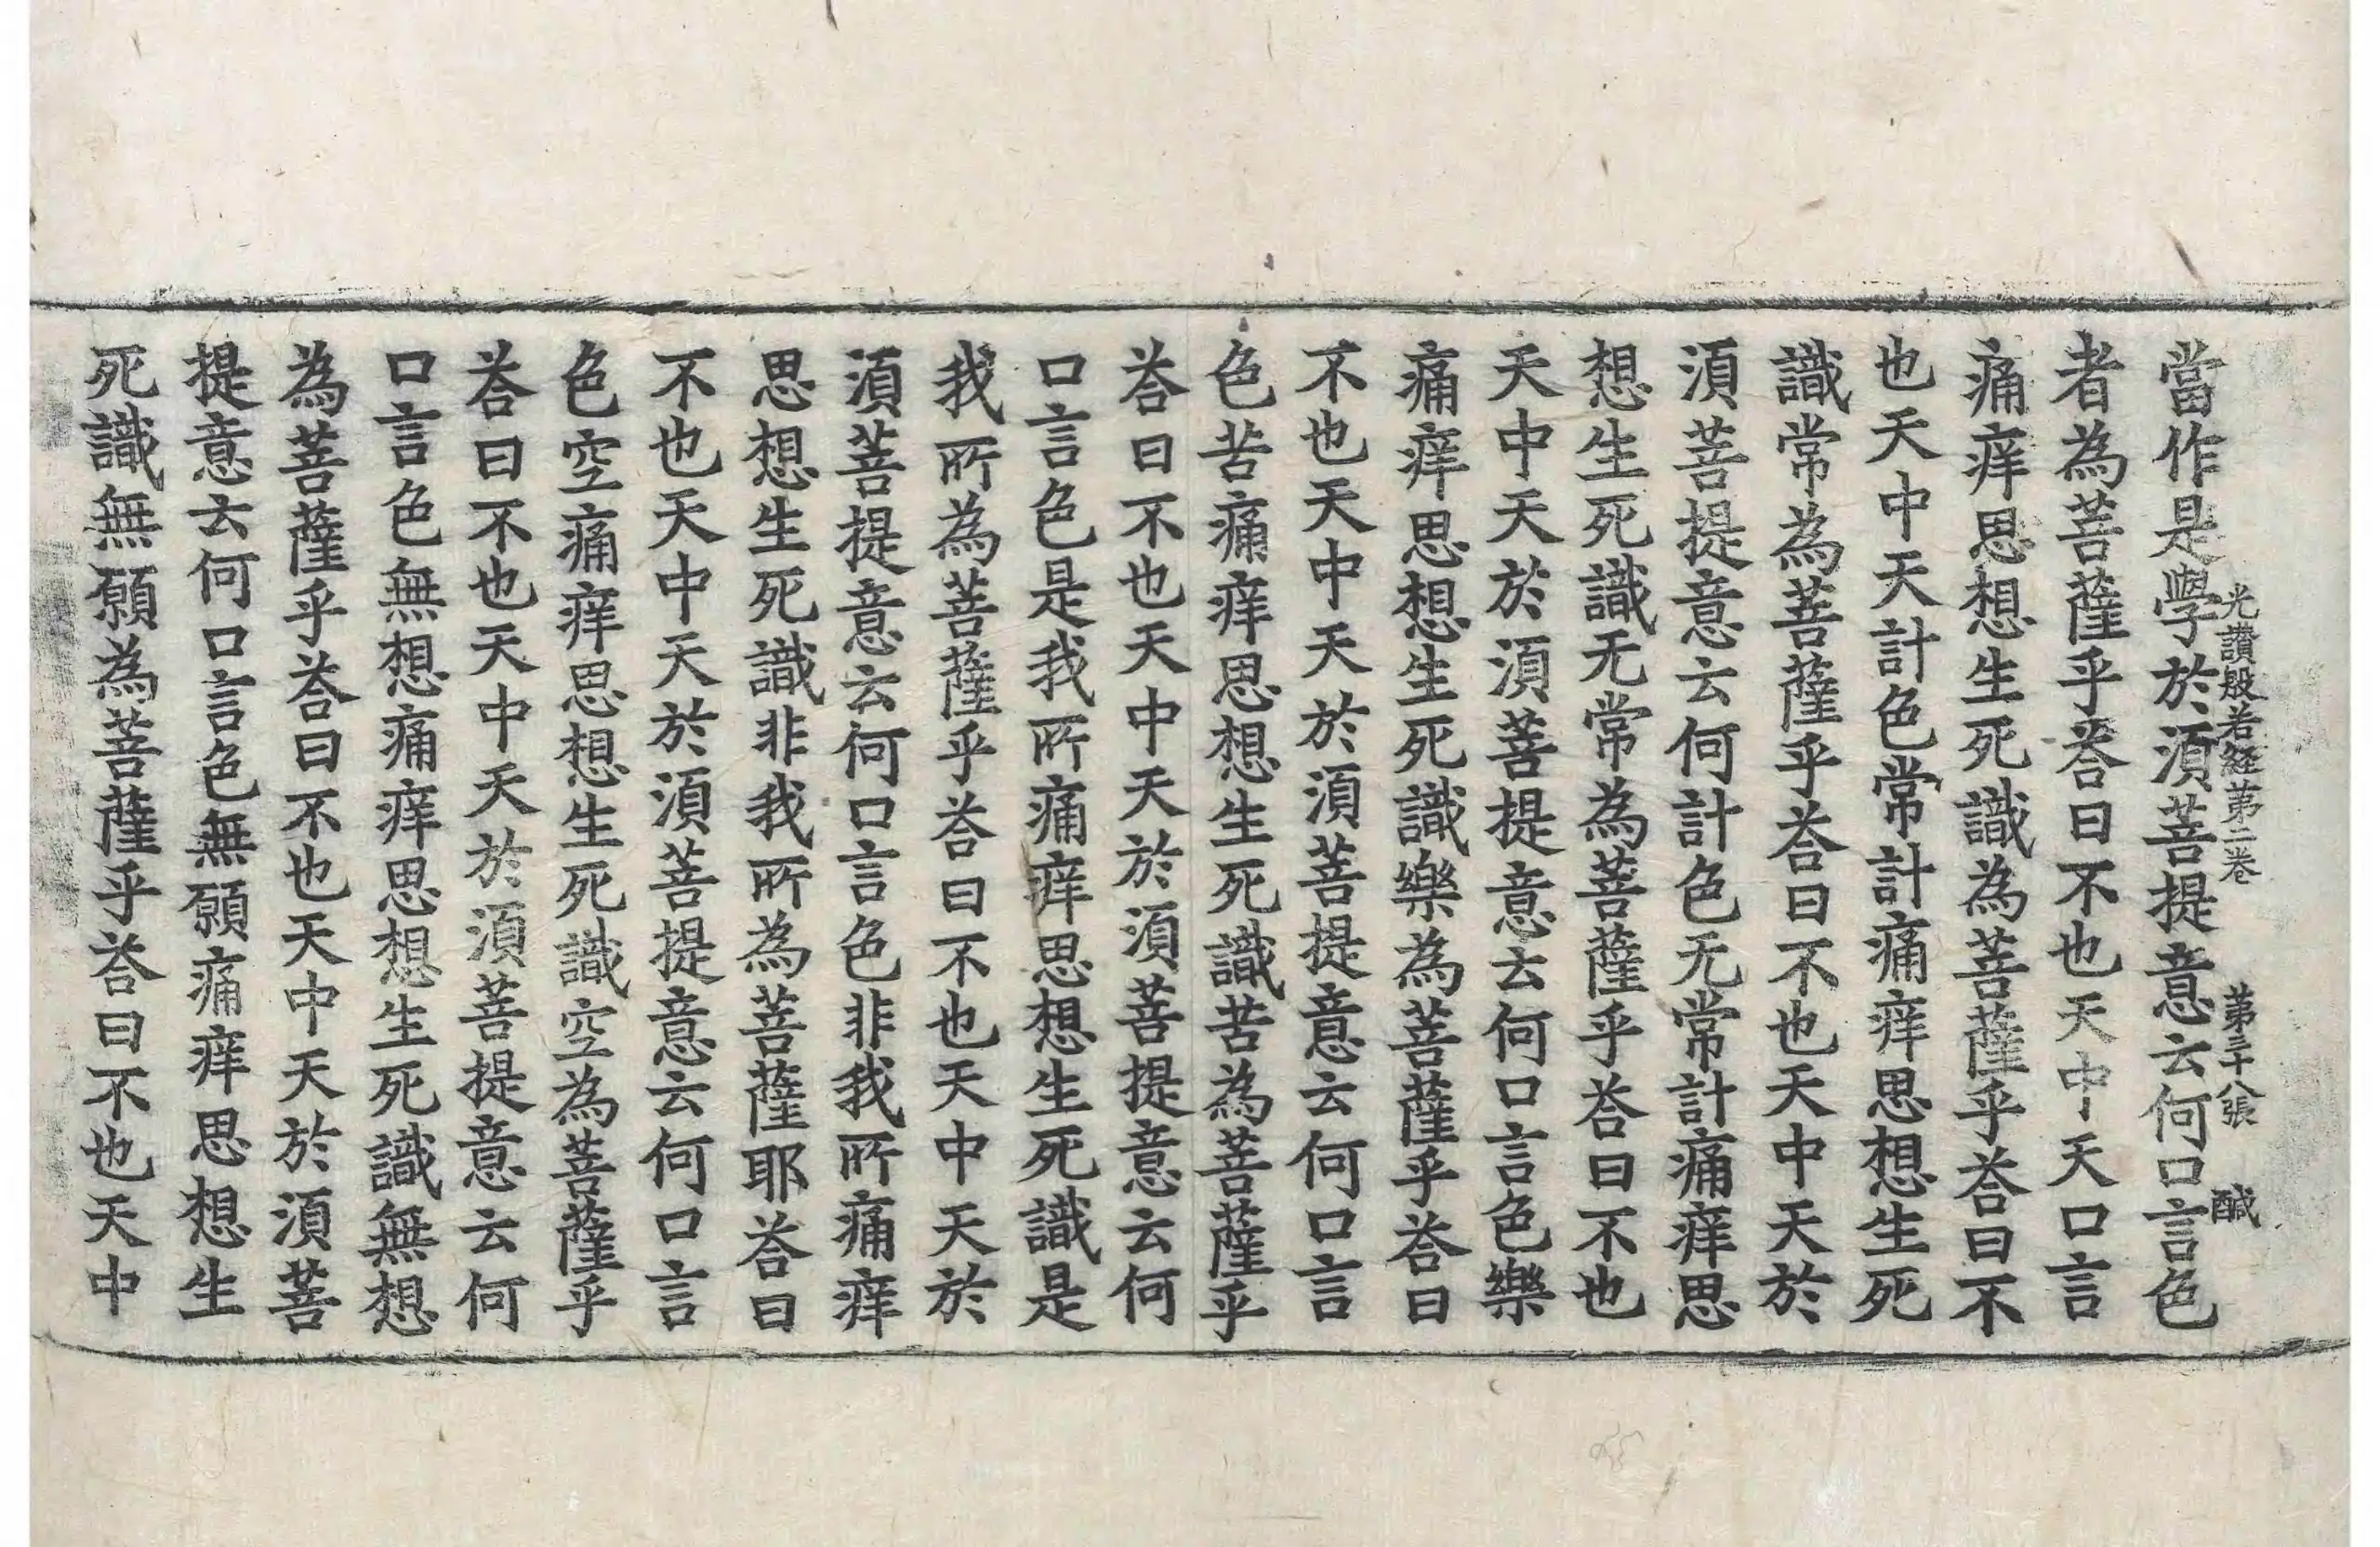 光讚般若経第二卷　第三十八張　醎
當作是學於湏菩提意云何口言色
者為菩薩乎荅曰不也天中天口言
痛痒思想生死識為菩薩乎荅曰不
也天中天計色常計痛痒思想生死
識常為菩薩乎荅曰不也天中天於
湏菩提意云何計色无常計痛痒思
想生死識无常為菩薩乎荅曰不也
天中天於湏菩提意云何口言色樂
痛痒思想生死識樂為菩薩乎荅曰
不也天中天於湏菩提意云何口言
色苦痛痒思想生死識苦為菩薩乎
荅曰不也天中天於湏菩提意云何
口言色是我所痛痒思想生死識是
我所為菩薩乎荅曰不也天中天於
湏菩提意云何口言色非我所痛痒
思想生死識非我所為菩薩耶荅曰
不也天中天於湏菩提意云何口言
色空痛痒思想生死識空為菩薩乎
荅曰不也天中天於湏菩提意云何
口言色無想痛痒思想生死識無想
為菩薩乎荅曰不也天中天於湏菩
提意云何口言色無願痛痒思想生
死識無願為菩薩乎荅曰不也天中